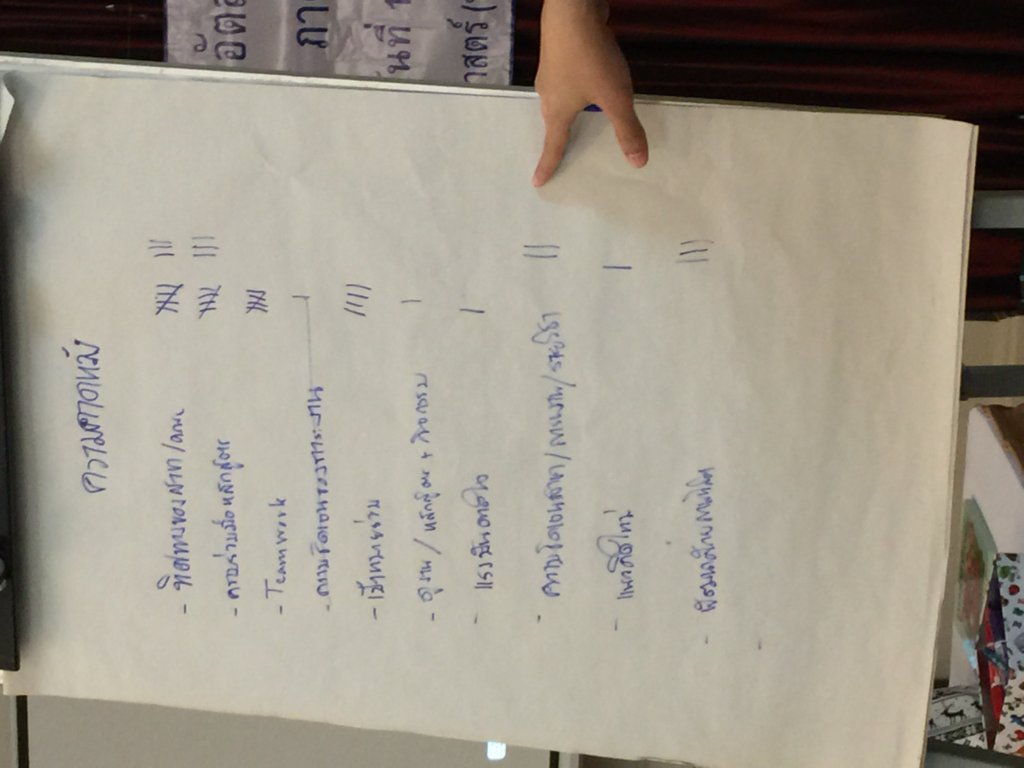 อัต
ภา
วันที่ 1
าสตร์ (
ความคาดหวัง
- ทิศทางของสาขา/คณะ
- ความร่วมมือ หลักสูตร
- Teamwork
- ความชัดเจนของภาระงาน
- เป้าหมายร่วม
- ดูงาน / หลักสูตร + กิจกรรม
- แรงบันดาลใจ
- ความชัดเจนสาขา / ภาระงาน / รายวิชา
- แนวคิดใหม่
-
-